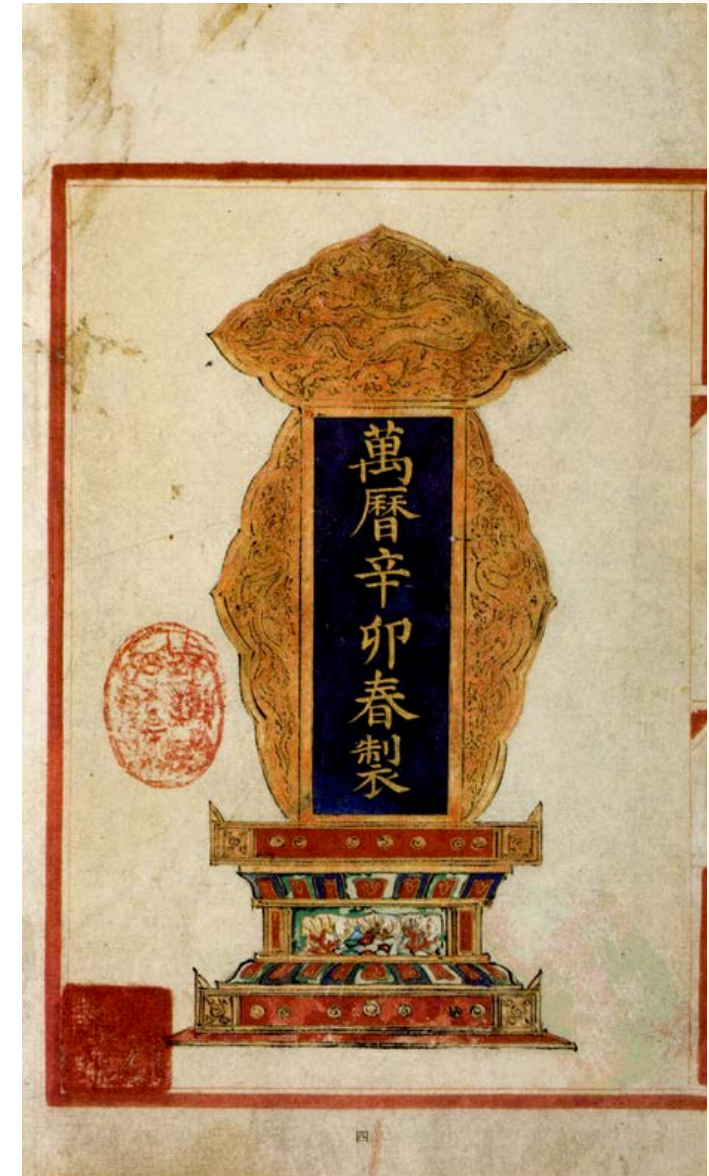 萬曆辛卯春製
四